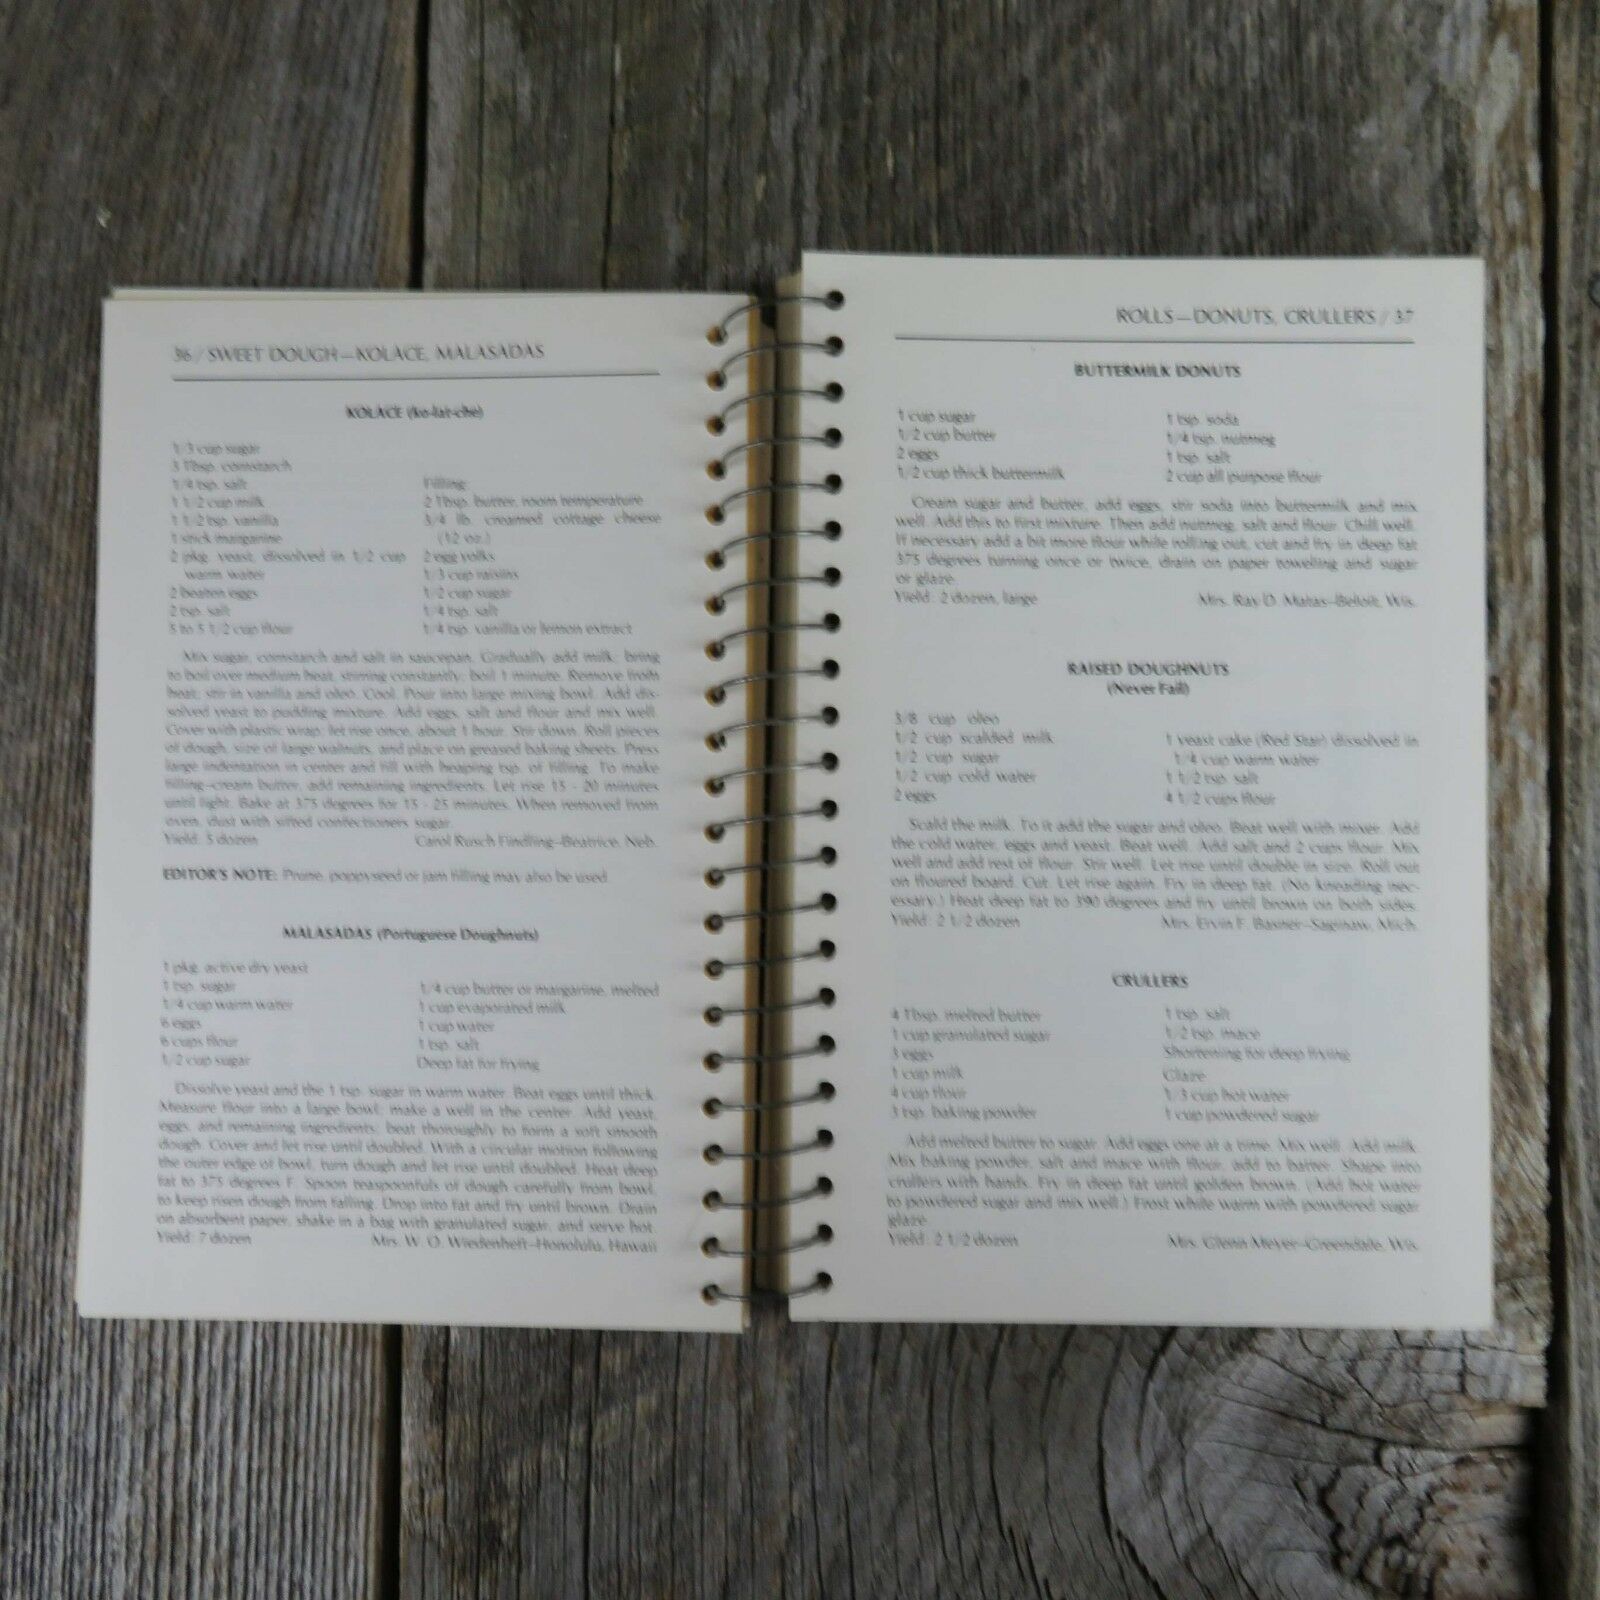 36 / SWEET DOUGH—KOLACE, MALASADAS
KOLACE (ko-lat-che)
1/3 cup sugar
3 Tbsp. cornstarch
1/4 tsp. salt
1 1/2 cup milk
1 1/2 tsp. vanilla
1 stick margarine
2 pkg. yeast, dissolved in 1/2 cup
warm water
2 beaten eggs
2 tsp. salt
5 to 5 1/2 cup flour
Filling:
2 Tbsp. butter, room temperature
3/4 lb. creamed cottage cheese
(12 oz.)
2 egg yolks
1/3 cup raisins
1/2 cup sugar
1/4 tsp. salt
1/4 tsp. vanilla or lemon extract
Mix sugar, cornstarch and salt in saucepan. Gradually add milk; bring
to boil over medium heat, stirring constantly; boil 1 minute. Remove from
heat; stir in vanilla and oleo. Cool. Pour into large mixing bowl. Add dis-
solved yeast to pudding mixture. Add eggs, salt and flour and mix well.
Cover with plastic wrap; let rise once, about 1 hour. Stir down. Roll pieces
of dough, size of large walnuts, and place on greased baking sheets. Press
large indentation in center and fill with heaping tsp. of filling. To make
filling–cream butter, add remaining ingredients. Let rise 15 - 20 minutes
until light. Bake at 375 degrees for 15 - 25 minutes. When removed from
oven, dust with sifted confectioners sugar.
Yield: 5 dozen Carol Rusch Findling–Beatrice, Neb.
EDITOR'S NOTE: Prune, poppyseed or jam filling may also be used.
MALASADAS (Portuguese Doughnuts)
1 pkg. active dry yeast
1 tsp. sugar
1/4 cup warm water
6 eggs
6 cups flour
1/2 cup sugar
1/4 cup butter or margarine, melted
1 cup evaporated milk
1 cup water
1 tsp. salt
Deep fat for frying
Dissolve yeast and the 1 tsp. sugar in warm water. Beat eggs until thick.
Measure flour into a large bowl; make a well in the center. Add yeast,
eggs, and remaining ingredients; beat thoroughly to form a soft smooth
dough. Cover and let rise until doubled. With a circular motion following
the outer edge of bowl, turn dough and let rise until doubled. Heat deep
fat to 375 degrees F. Spoon teaspoonfuls of dough carefully from bowl,
to keep risen dough from falling. Drop into fat and fry until brown. Drain
on absorbent paper, shake in a bag with granulated sugar, and serve hot.
Yield: 7 dozen Mrs. W. O. Wiedenheft–Honolulu, Hawaii
ROLLS—DONUTS, CRULLERS / 37
BUTTERMILK DONUTS
1 cup sugar
1/2 cup butter
2 eggs
1/2 cup thick buttermilk
1 tsp. soda
1/4 tsp. nutmeg
1 tsp. salt
2 cup all purpose flour
Cream sugar and butter, add eggs, stir soda into buttermilk and mix
well. Add this to first mixture. Then add nutmeg, salt and flour. Chill well.
If necessary add a bit more flour while rolling out, cut and fry in deep fat
375 degrees turning once or twice, drain on paper towelling and sugar
or glaze.
Yield: 2 dozen, large Mrs. Ray D. Matras–Beloit, Wis.
RAISED DOUGHNUTS
(Never Fail)
3/8 cup oleo
1/2 cup scalded milk
1/2 cup sugar
1/2 cup cold water
2 eggs
1 yeast cake (Red Star) dissolved in
1/4 cup warm water
1 1/2 tsp. salt
4 1/2 cups flour
Scald the milk. To it add the sugar and oleo. Beat well with mixer. Add
the cold water, eggs and yeast. Beat well. Add salt and 2 cups flour. Mix
well and add rest of flour. Stir well. Let rise until double in size. Roll out
on floured board. Cut. Let rise again. Fry in deep fat. (No kneading nec-
essary.) Heat deep fat to 390 degrees and fry until brown on both sides.
Yield: 2 1/2 dozen Mrs. Ervin F. Basner–Saginaw, Mich.
CRULLERS
4 Tbsp. melted butter
1 cup granulated sugar
3 eggs
1 cup milk
4 cup flour
3 tsp. baking powder
1 tsp. salt
1/2 tsp. mace
Shortening for deep frying
Glaze
1/3 cup hot water
1 cup powdered sugar
Add melted butter to sugar. Add eggs one at a time. Mix well. Add milk.
Mix baking powder, salt and mace with flour, add to batter. Shape into
crullers with hands. Fry in deep fat until golden brown. (Add hot water
to powdered sugar and mix well.) Frost while warm with powdered sugar
glaze.
Yield: 2 1/2 dozen Mrs. Glenn Meyer–Greendale, Wis.